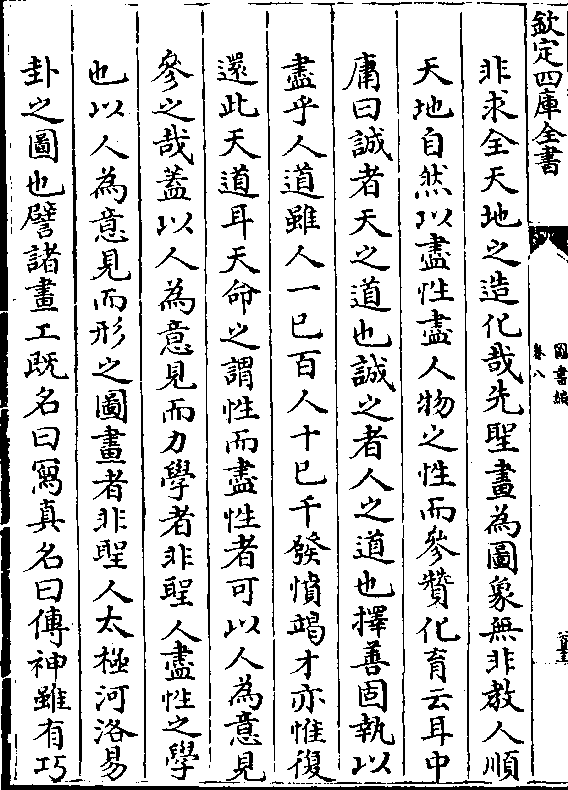 欽定四庫全書
圖書編
卷八
非求全天地之造化哉先聖畫為圖象無非教人順
天地自然以盡性盡人物之性而參贊化育云耳中
庸曰誠者天之道也誠之者人之道也擇善固執以
盡乎人道雖人一已百人十已千發憤竭才亦惟復
還此天道耳天命之謂性而盡性者可以人為意見
參之哉蓋以人為意見而力學者非聖人盡性之學
也以人為意見而形之圖畫者非聖人太極河洛易
卦之圖也譬諸畫工既名曰寫真名曰傳神雖有巧